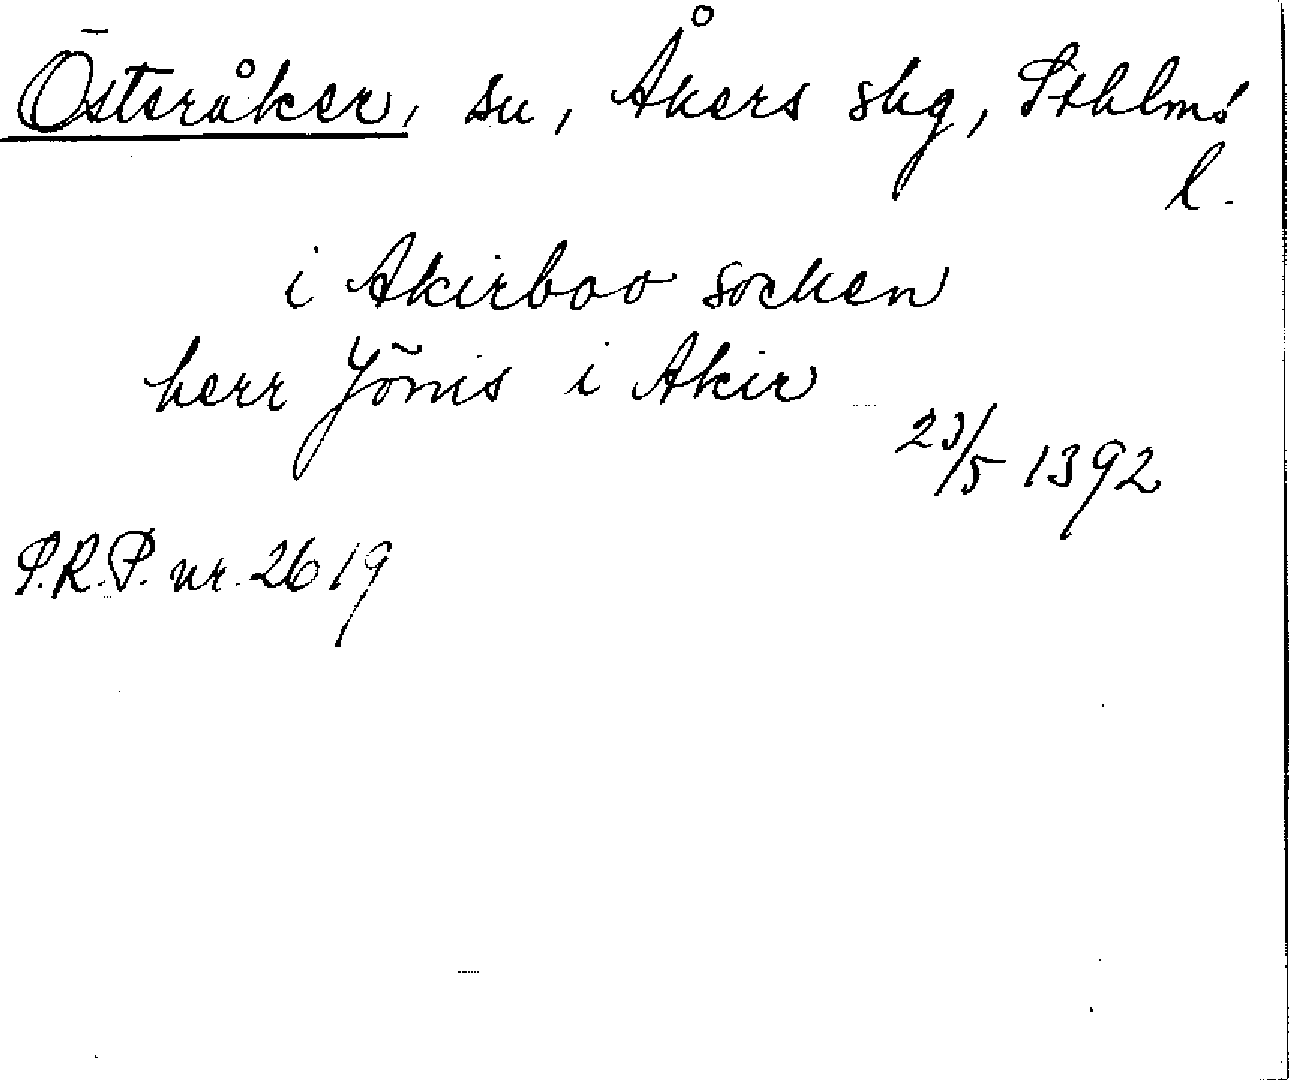 Österåker, sn, Åkers skg, Sthlms
l.
i Akirboo socken
herr Jönis i Akir
23/5 1392
S.R.P. nr. 2619